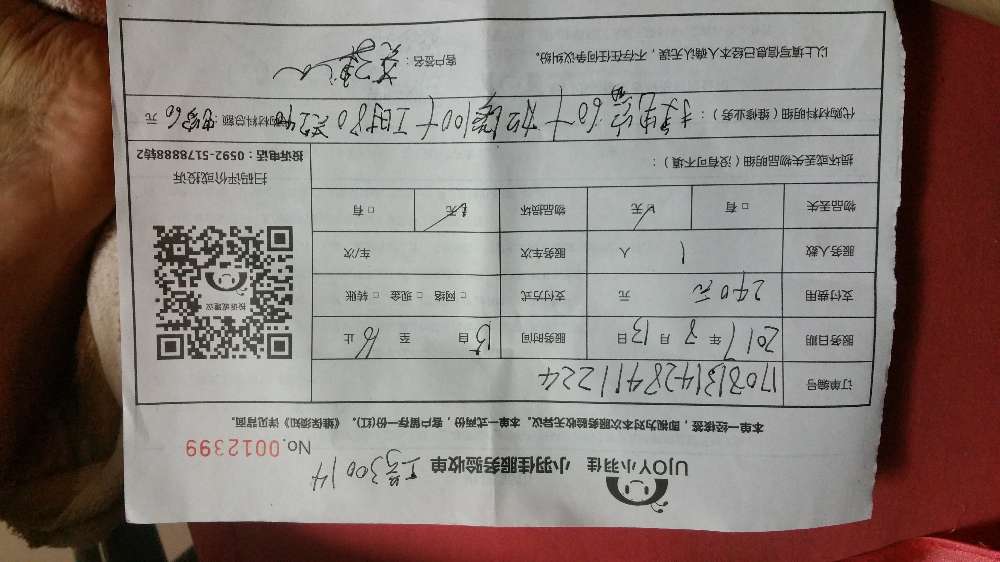 UJOY小羽佳 小羽佳服务验收单 工号30014
No.0012399
本单一经核签，即视为对本次服务验收无异议。本单一式两份，客户留存一份(红)。《维保须知》详见背面。
订单编号 1708131428411224
服务日期 2017年8月13日 服务时间 15自 至 16止
支付费用 240元 元 支付方式 □网络 □现金 □转账
服务人数 1 人 服务车次 车/次
物品丢失 □有 □无 物品损坏 □无 □有
损坏或丢失物品明细（没有可不填）：
投诉或建议
扫码评价或投诉
投诉电话：0592-5178888转2
代购材料明细（维修业务）： 60 100 工时80 240 代购材料总额： 60 元
以上填写信息已经本人确认无误，不存在任何争议纠纷。 客户签名：